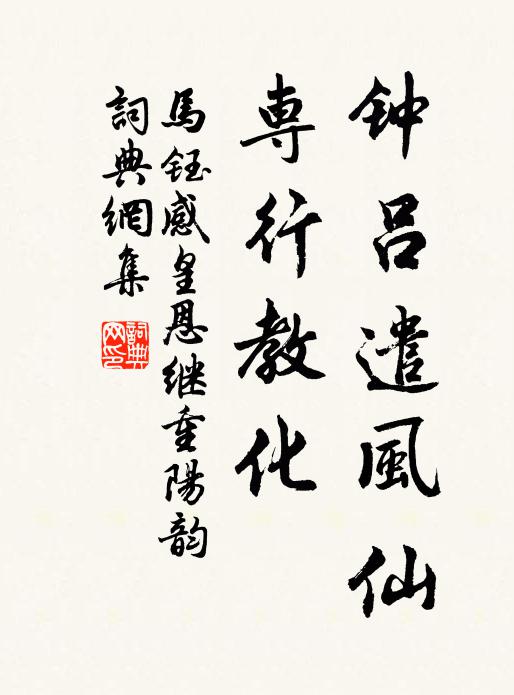 钟吕遣風仙
専行教化
馬鈺感皇恩继重陽韵
詞典網集
詞典網印